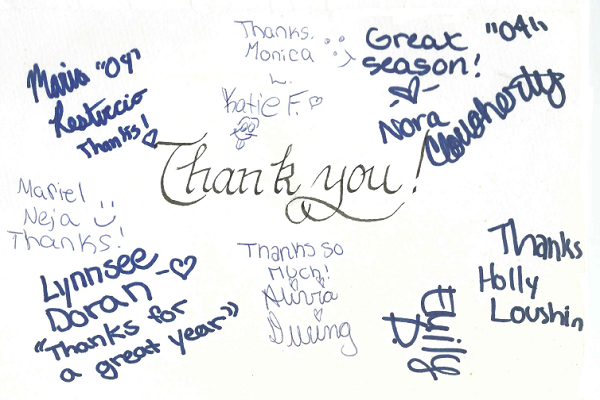 Thanks,
Monica
L.
Katie F.
Great "04"
season!
Nora
Clougherty
Maria "04"
Restuccio
Thanks!
Thank you!
Mariel
Neja
Thanks!
Lynnsee
Doran
"Thanks for
a great year"
Thanks so
Much!
Alivia
Thanks
Holly
Loushin
Emily
D